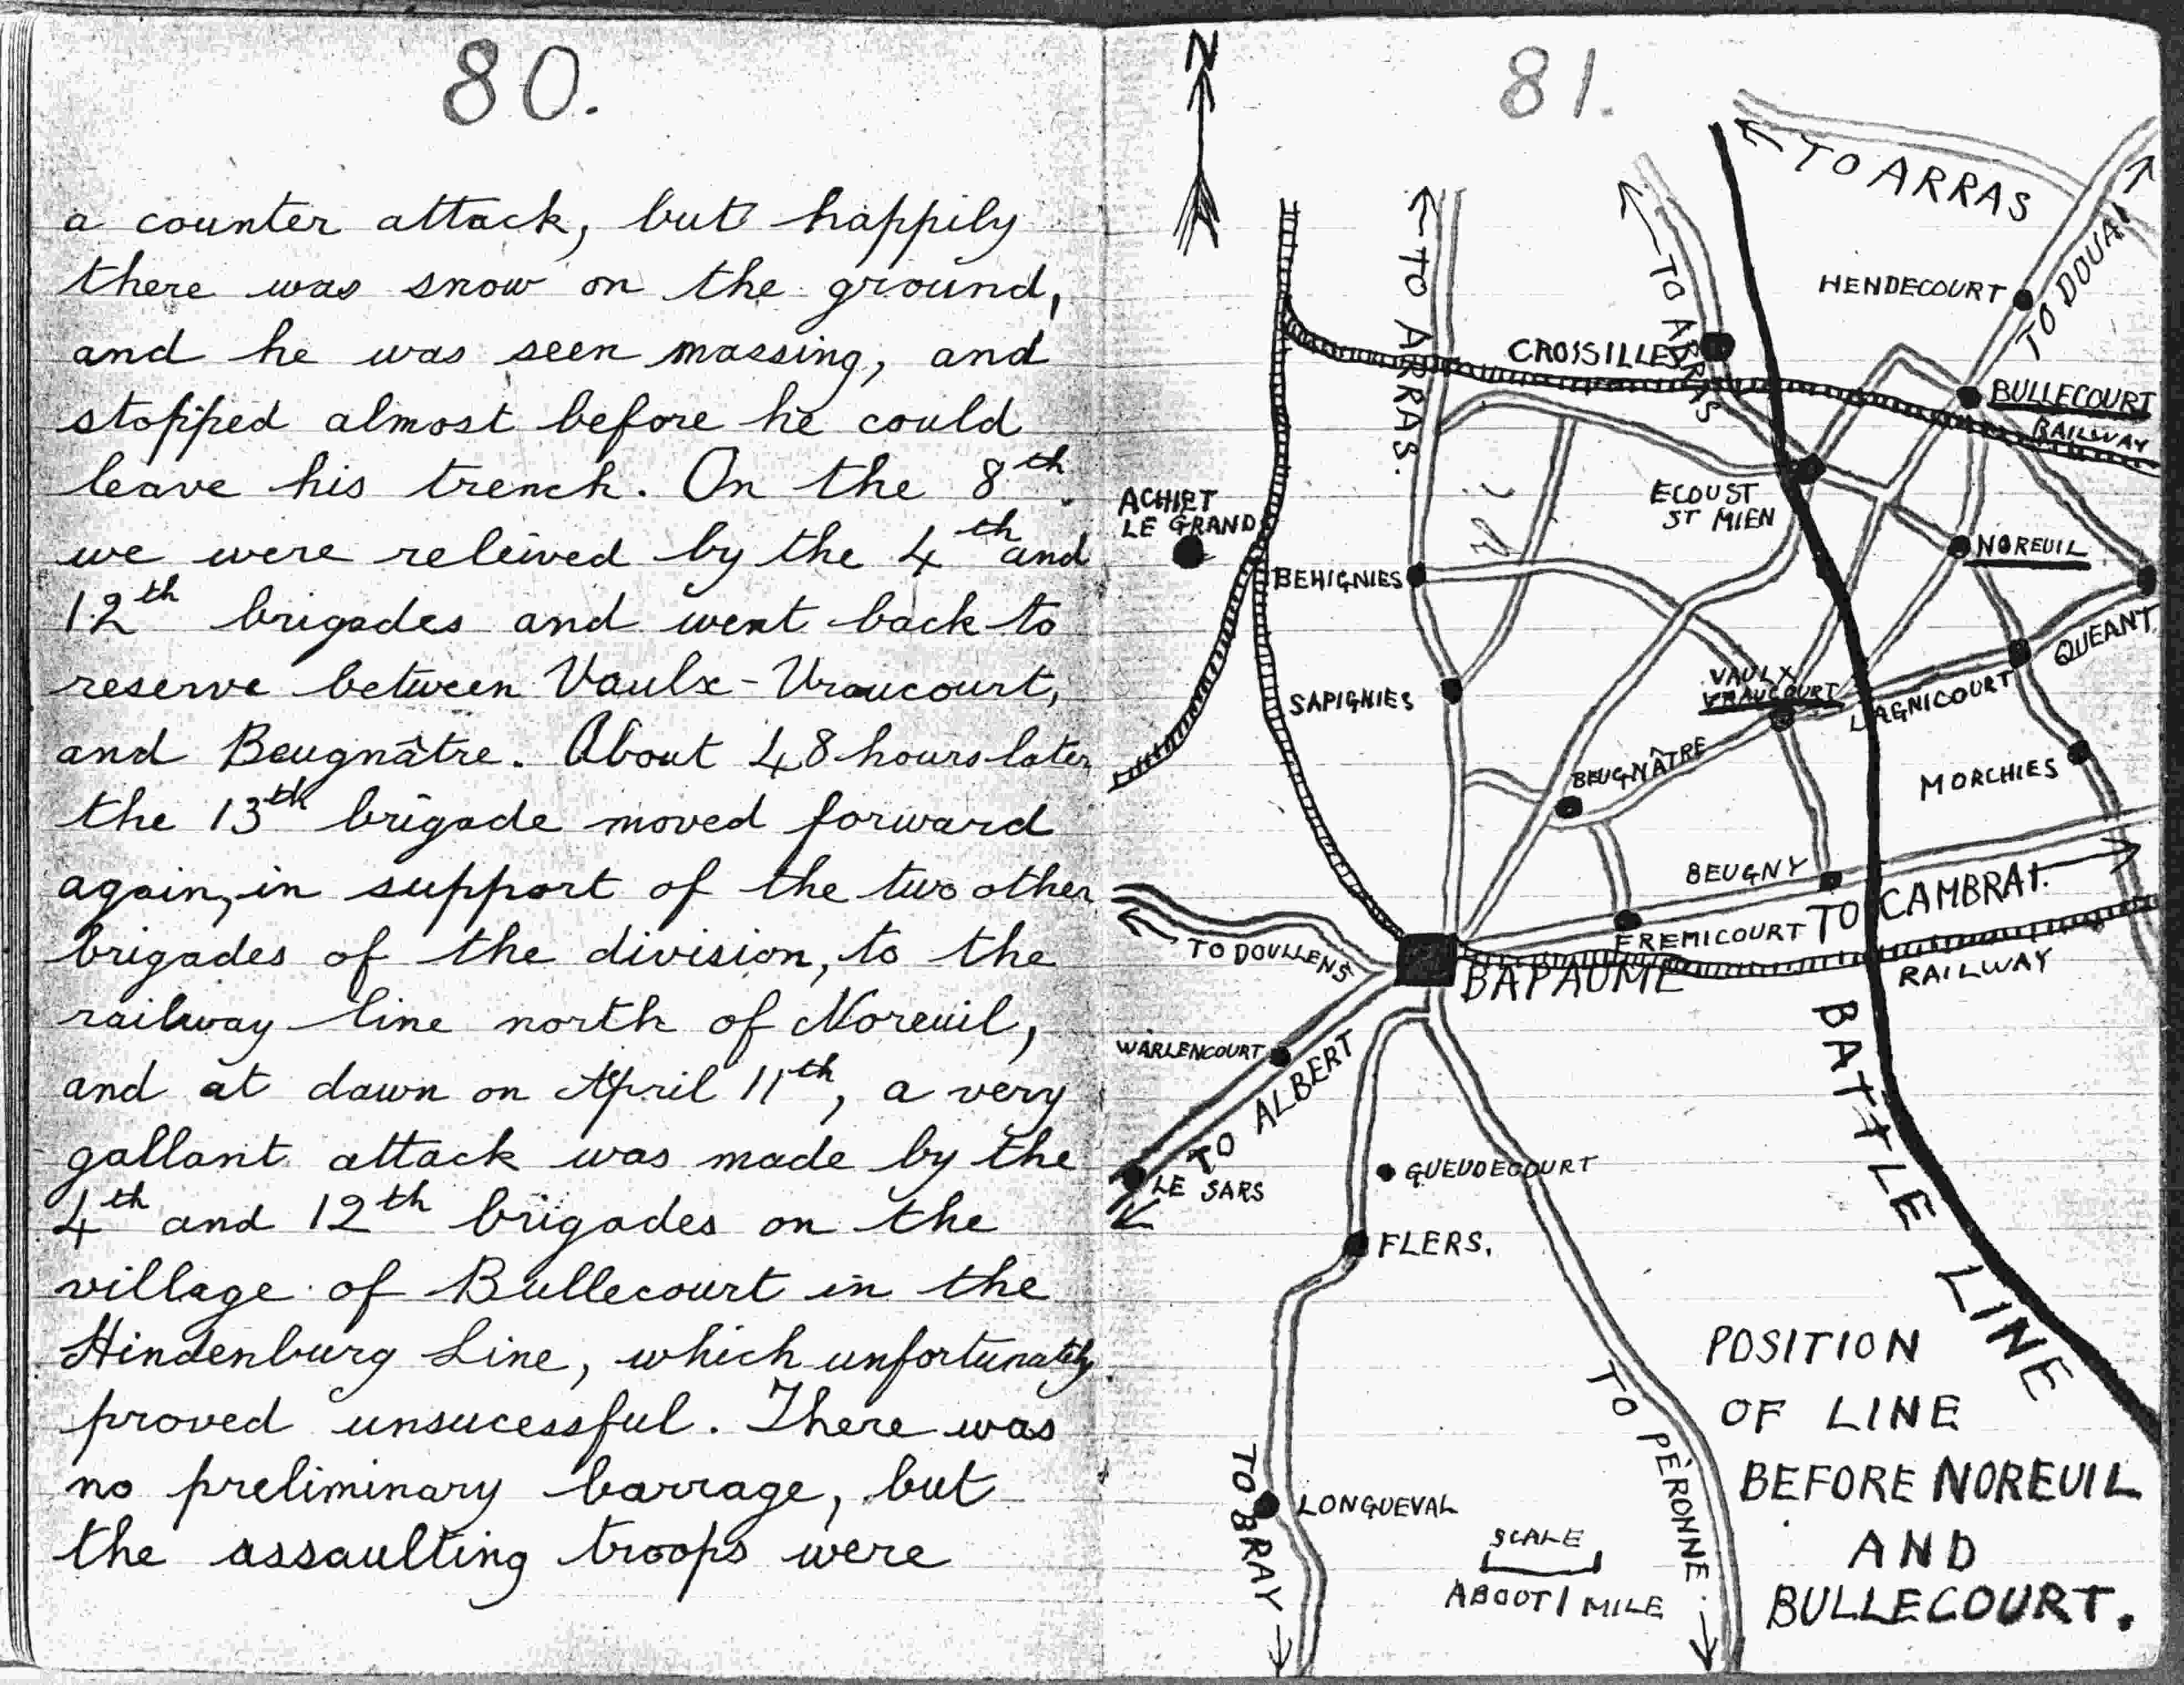 80.
a counter attack, but happily
there was snow on the ground,
and he was seen massing, and
stopped almost before he could
leave his trench. On the 8th
we were releived by the 4th and
12th brigades and went back to
reserve between Vaulx-Vraucourt,
and Beugnâtre. About 48 hours later
the 13th brigade moved forward
again, in support of the two other
brigades of the division, to the
railway line north of Noreuil,
and at dawn on April 11th, a very
gallant attack was made by the
4th and 12th brigades on the
village of Bullecourt in the
Hindenburg Line, which unfortunately
proved unsucessful. There was
no preliminary barrage, but
the assaulting troops were
81.
N
TO ARRAS
TO ARRAS.
TO ARRAS
TO DOUAI
HENDECOURT
CROISILLES
BULLECOURT
RAILWAY
ACHIET
LE GRAND
ECOUST
ST MIEN
NOREUIL
BEHIGNIES
QUEANT
SAPIGNIES
VAULX
VRAUCOURT
LAGNICOURT
BEUGNÂTRE
MORCHIES
BEUGNY
TO CAMBRAI.
FREMICOURT
TO DOULLENS
BAPAUME
RAILWAY
WARLENCOURT
TO ALBERT
BATTLE LINE
LE SARS
GUEUDECOURT
FLERS.
TO PÈRONNE.
TO BRAY
LONGUEVAL
SCALE
ABOUT 1 MILE
POSITION
OF LINE
BEFORE NOREUIL
AND
BULLECOURT.